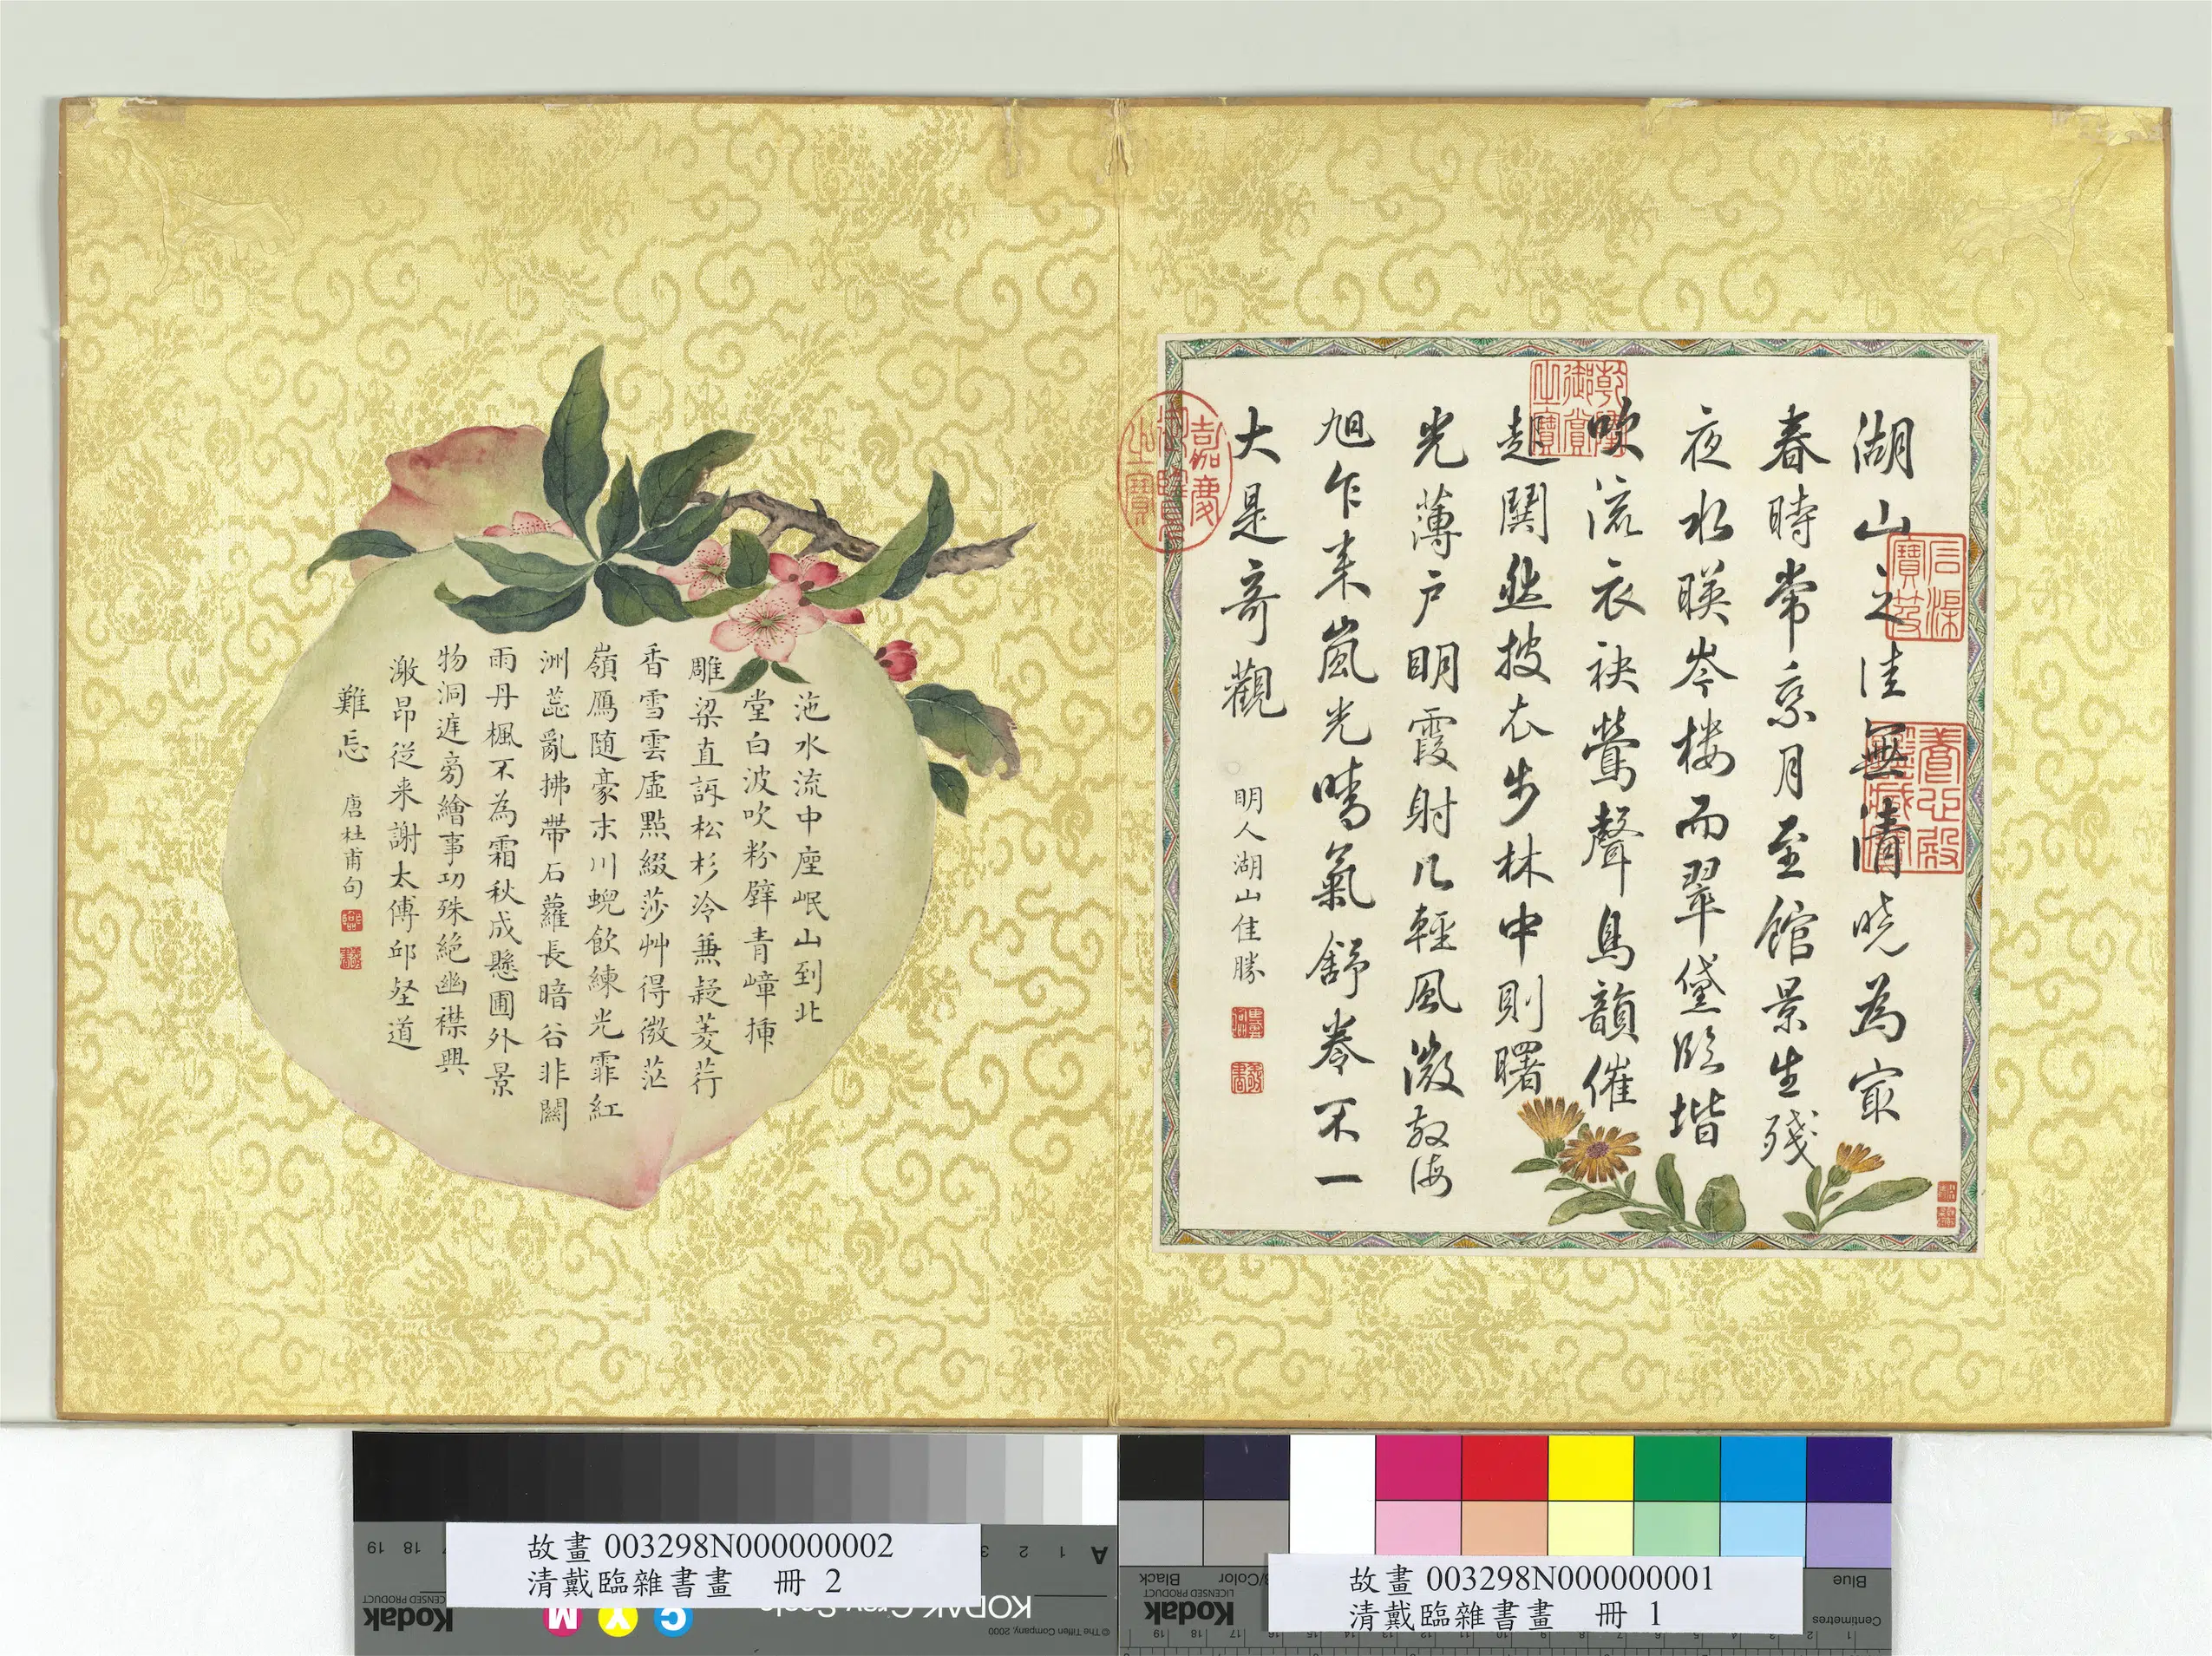 湖山之佳無清曉為宜
春時常系月至館景生殘
夜水暎岑樓而翠黛臨堦
吹流衣袂鶯聲鳥韻催
起關然披衣步林中則曙
光薄户明霞射几輕風微散海
旭乍来嵐光晴氣舒卷不一
大是奇觀
明人湖山佳勝
乾隆御賞之寶
嘉慶御覽之寶
石渠寶笈
養心殿鑑藏寶
沲水流中座岷山到北
堂白波吹粉壁青嶂插
雕梁直訝松杉冷兼疑菱荇
香雪雲虛點綴莎艸得微茫
嶺鴈随豪末川蜺飲練光霏紅
洲蕋亂拂帶石蘿長暗谷非關
雨丹楓不為霜秋成懸圃外景
物洞庭旁繪事功殊絕幽襟興
激昂從来謝太傅邱壑道
難忘
唐杜甫句
故畫 003298N000000002
清戴臨雜書畫 冊 2
故畫 003298N000000001
清戴臨雜書畫 冊 1
19 18
3 2 1 A
Kodak
LICENSED PRODUCT
M Y C
KODAK Gray Scale
©The Tiffen Company, 2000
Kodak
LICENSED PRODUCT
Black
3/Color
Blue
Centimetres
19 18 17 16